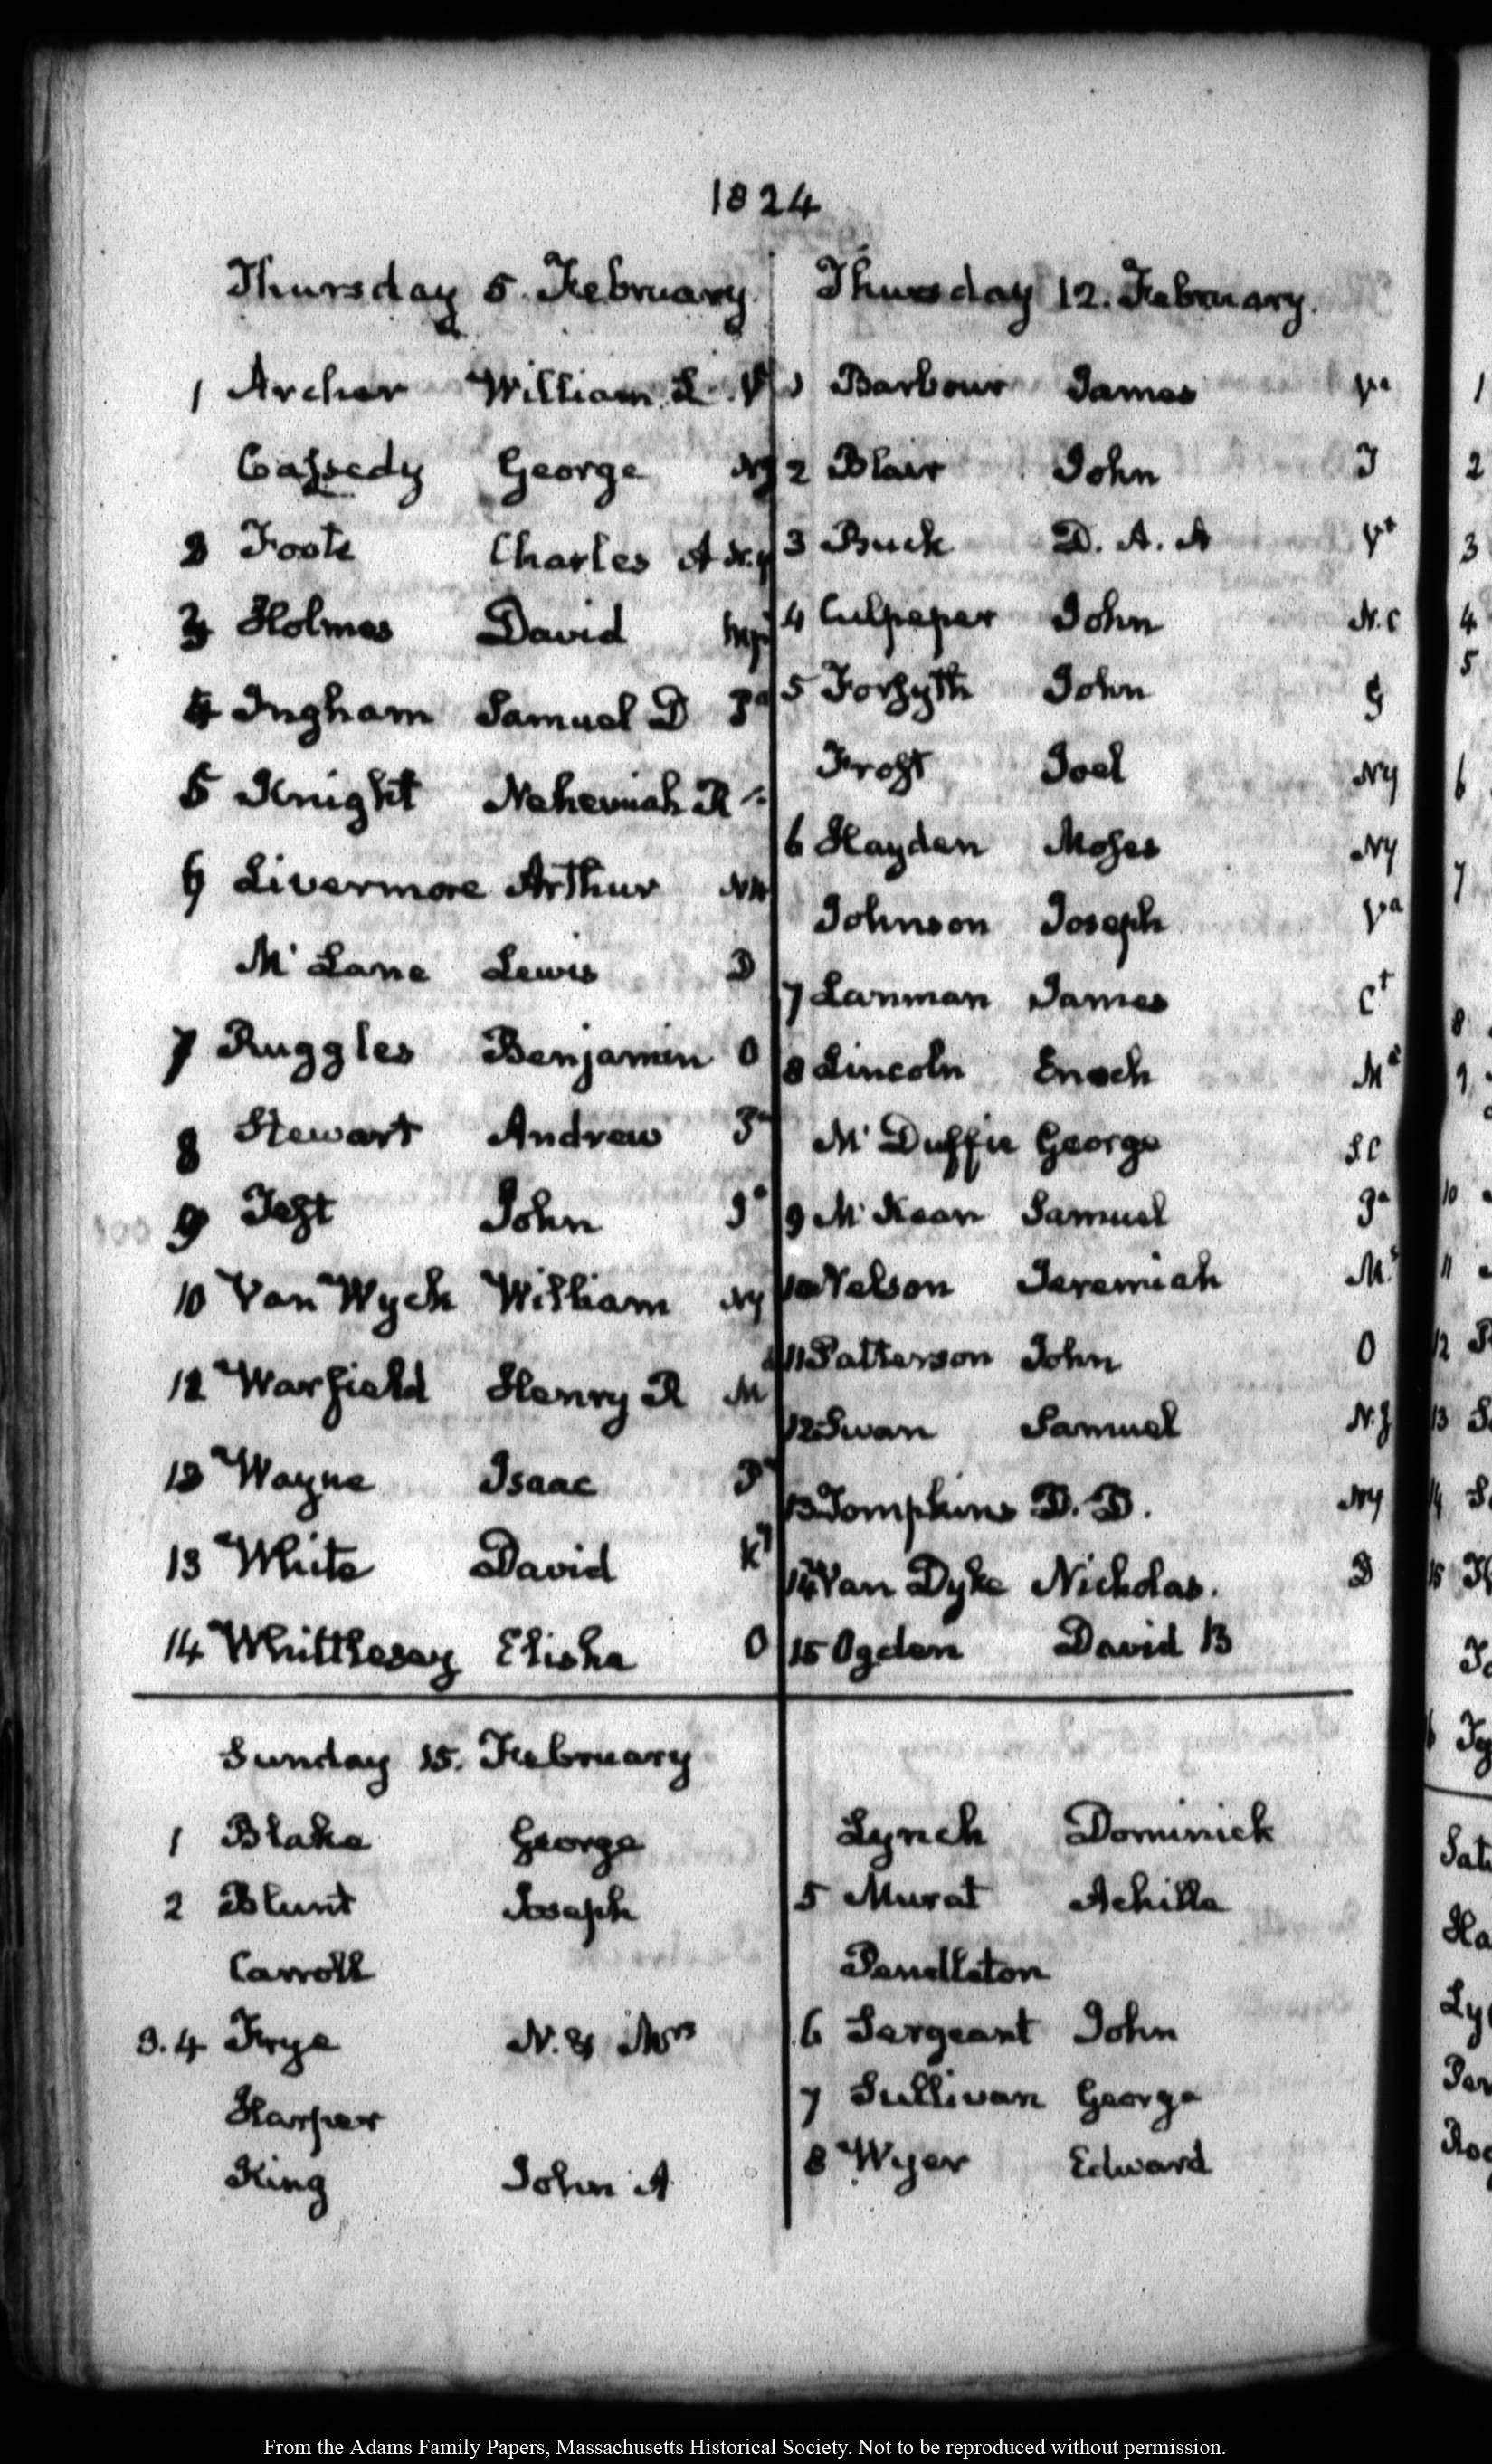 1824
Thursday 5. February.
1 Archer William S. Va
Cassedy George NJ
2 Foote Charles A N.Y
3 Holmes David Mi
4 Ingham Samuel D Pa
5 Knight Nehemiah R
6 Livermore Arthur NH
McLane Lewis D
7 Ruggles Benjamin O
8 Stewart Andrew Pa
9 Test John Ia
10 Van Wyck William NY
12 Warfield Henry R M
13 Wayne Isaac Pa
13 White David Ky
14 Whittlesey Elisha O
Thursday 12. February.
1 Barbour James Va
2 Blair John T
3 Buck D. A. A Vt
4 Culpeper John N.C
5 Forsyth John G
Frost Joel NY
6 Hayden Moses NY
Johnson Joseph Va
7 Lanman James Ct
8 Lincoln Enoch Me
McDuffie George SC
9 McKean Samuel Pa
10 Nelson Jeremiah Ms
11 Patterson John O
12 Swan Samuel N.J
13 Tompkins D. D. NY
14 Van Dyke Nicholas. D
15 Ogden David B
Sunday 15. February
1 Blake George
2 Blunt Joseph
Carroll
3.4 Frye N. & Mrs
Harper
King John A
Lynch Dominick
5 Murat Achille
Pendleton
6 Sergeant John
7 Sullivan George
8 Wyer Edward
From the Adams Family Papers, Massachusetts Historical Society. Not to be reproduced without permission.